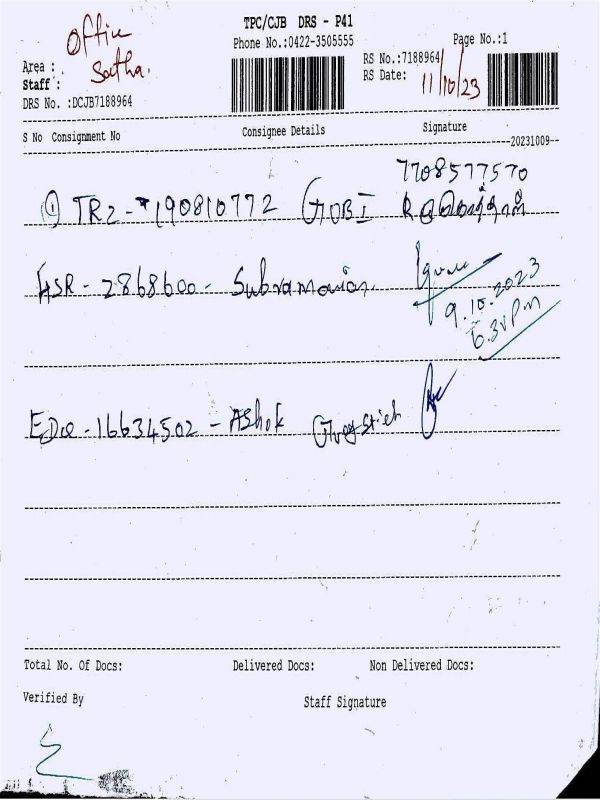 TPC/CJB DRS - P41
Office
Phone No.:0422-3505555
Page No.:1
Area :
Satha.
RS No.:7188964
Staff :
RS Date: 11/10/23
DRS No. :DCJB7188964
S No Consignment No Consignee Details Signature
--20231009--
7708577570
① TR2-190810772 GOBI
2868600 - Subramanian.
9.10.2023
6.30 P.m
16634502 - Ashok
Total No. Of Docs: Delivered Docs: Non Delivered Docs:
Verified By Staff Signature